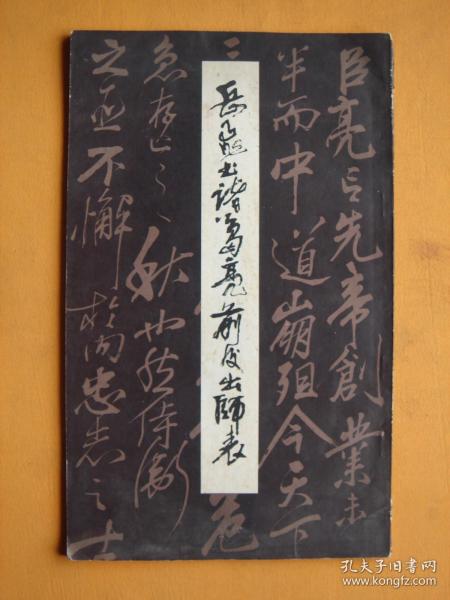 臣亮言先帝創業未
半而中道崩殂今天下
三
危
岳飛书諸葛亮前後出師表
急存亡之秋也然侍衛
之臣不懈於內忠志之士
孔夫子旧书网
www.kongfz.com